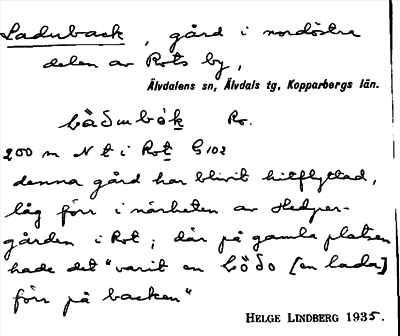 Laduback, gård i nordöstra
delen av Rots by,
Älvdalens sn, Älvdals tg, Kopparbergs län.
Ro.
200 m N t i Rot G 102
denna gård har blivit hitflyttad,
låg förr i närheten av Hedper-
gården i Rot; där på gamla platsen
hade det "varit en [en lada]
förr på backen"
HELGE LINDBERG 1935.